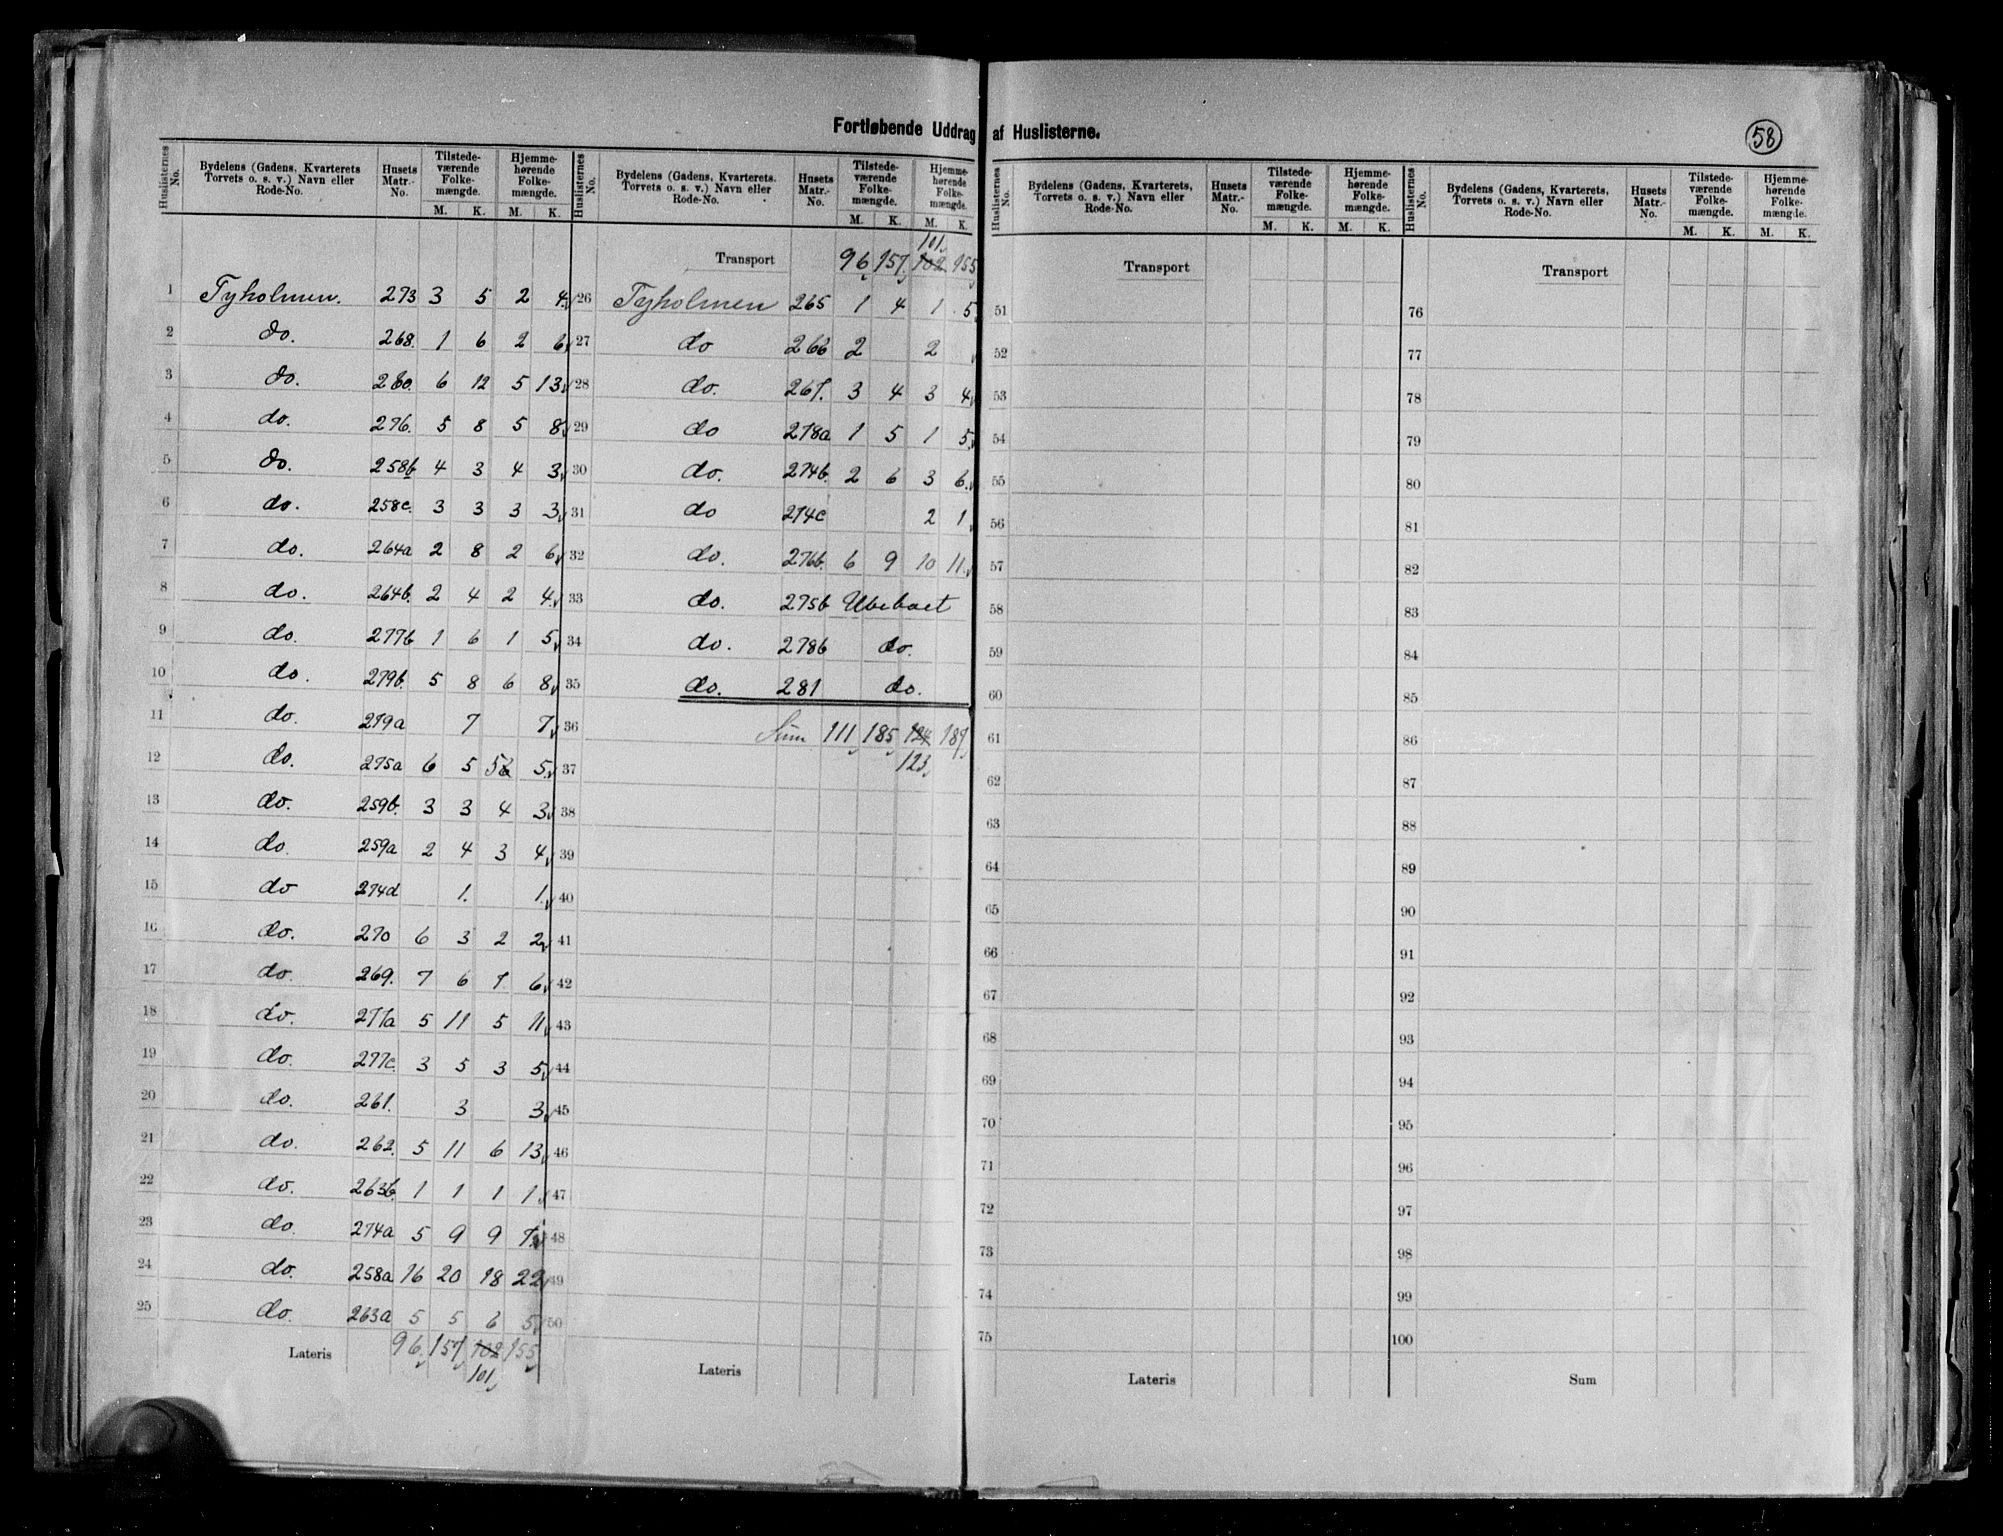 Fortløbende Uddrag af Huslisterne.
58
Huslisternes No. Bydelens (Gadens, Kvarterets Torvets o. s. v.) Navn eller Rode-No. Husets Matr.-No. Tilstedeværende Folkemængde. Hjemmehørende Folkemængde.
M. K. M. K.
1 Tyholmen. 273 3 5 2 4
2 do. 268. 1 6 2 6
3 do. 280. 6 12 5 13
4 do. 276. 5 8 5 8
5 do. 258b 4 3 4 3
6 do. 258c. 3 3 3 3
7 do. 264a 2 8 2 6
8 do. 264b. 2 4 2 4
9 do. 277b 1 6 1 5
10 do. 279b. 5 8 6 8
11 do. 279a 7 7
12 do. 275a 6 5 5 5
13 do. 259b. 3 3 4 3
14 do. 259a 2 4 3 4
15 do 274d 1. 1.
16 do. 270 6 3 2 2
17 do. 269. 7 6 7 6
18 do. 277a 5 11 5 11
19 do. 277c. 3 5 3 5
20 do. 261. 3 3
21 do. 262. 5 11 6 13
22 do. 263b. 1 1 1 1
23 do. 274a 5 9 9 7
24 do. 258a 16 20 18 22
25 do. 263a 5 5 6 5
Lateris 96 157 102 155
101
Huslisternes No. Bydelens (Gadens, Kvarterets. Torvets o. s. v.) Navn eller Rode-No. Husets Matr.-No. Tilstedeværende Folkemængde. Hjemmehørende Folkemængde.
M. K. M. K.
101
Transport 96 157 102 155
26 Tyholmen 265 1 4 1 5
27 do 266 2 2
28 do. 267. 3 4 3 4
29 do 278a 1 5 1 5
30 do. 274b. 2 6 3 6
31 do 274c 2 1
32 do. 276b. 6 9 10 11
33 do. 275b Ubeboet
34 do. 278b do.
35 do. 281 do.
36 Sum 111 185 124 187
37 123
38
39
40
41
42
43
44
45
46
47
48
49
50
Lateris
Huslisternes No. Bydelens (Gadens, Kvarterets, Torvets o. s. v.) Navn eller Rode-No. Husets Matr.-No. Tilstedeværende Folkemængde. Hjemmehørende Folkemængde.
M. K. M. K.
Transport
51
52
53
54
55
56
57
58
59
60
61
62
63
64
65
66
67
68
69
70
71
72
73
74
75
Lateris
Huslisternes No. Bydelens (Gadens, Kvarterets, Torvets o. s. v.) Navn eller Rode-No. Husets Matr.-No. Tilstedeværende Folkemængde. Hjemmehørende Folkemængde.
M. K. M. K.
Transport
76
77
78
79
80
81
82
83
84
85
86
87
88
89
90
91
92
93
94
95
96
97
98
99
100
Sum